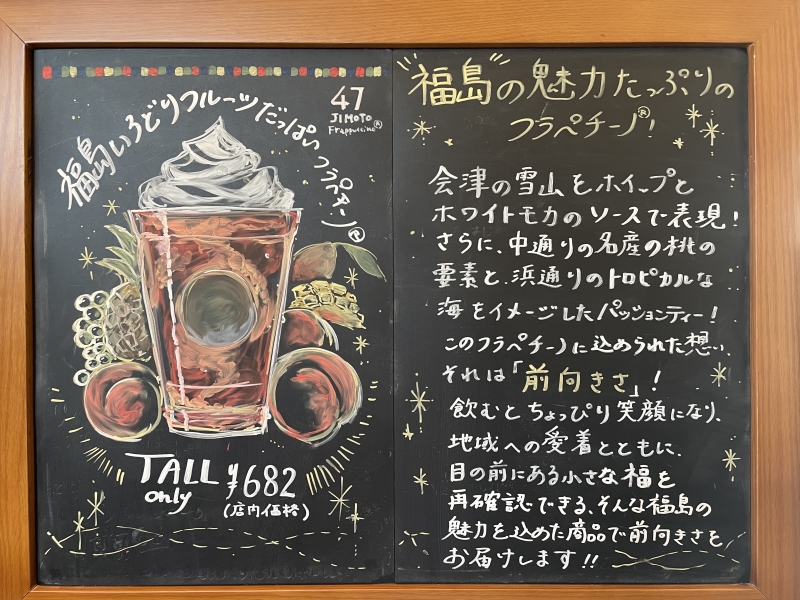 47
JIMOTO
Frappuccino®
福島いろどりフルーツだっぱいフラペチーノ®
TALL ¥682
only
(店内価格)
"福島"の魅力たっぷりの
フラペチーノ®!
会津の雪山をホイップと
ホワイトモカのソースで表現!
さらに、中通りの名産の桃の
要素と、浜通りのトロピカルな
海をイメージしたパッションティー!
このフラペチーノに込められた想い、
それは「前向きさ」!
飲むとちょっぴり笑顔になり、
地域への愛着とともに、
目の前にある小さな福を
再確認できる、そんな福島の
魅力を込めた商品で前向きさを
お届けします!!